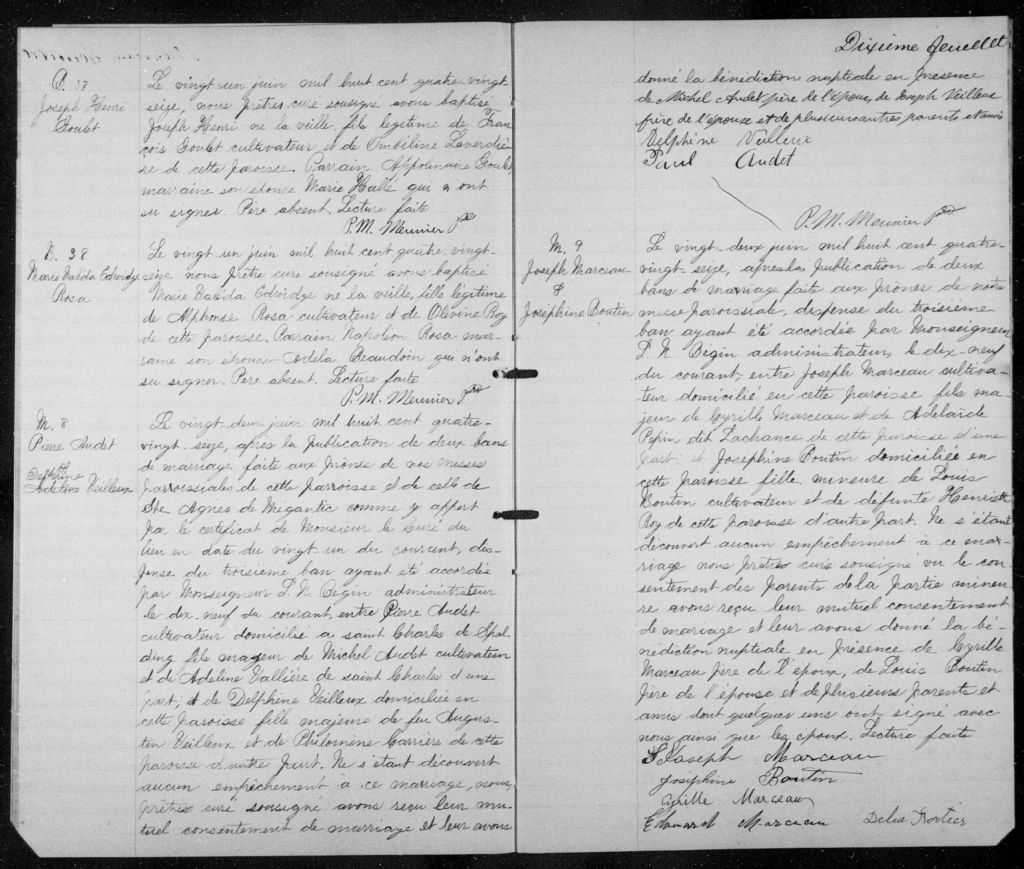 B. 37
Joseph Henri
Goulet
Le vingt-un juin mil huit cent quatre-vingt
seize, nous prêtre curé sousigné avons baptisé
Joseph Henri né la veille, fils légitime de Fran
çois Goulet cultivateur et de Ombéline Laverdiè
re de cette paroisse. Parrain Appolinaire Goulet
marraine son épouse Marie Hallé qui n'ont
su signer. Père absent. Lecture faite
P. M. Meunier Ptre
B. 38
Marie Exilda Edwidge
Rosa
Le vingt-un juin mil huit cent quatre-vingt-
seize nous prêtre curé sousigné avons baptisé
Marie Edwidge né la veille, fille légitime
de Alphonse Rosa cultivateur et de Olévine Roy
de cette paroisse. Parrain Napoléon Rosa mar-
raine son épouse Adela Beaudoin qui n'ont
su signer. Père absent. Lecture faite
P. M. Meunier Ptre
M. 8
Pierre Audet
&
Delphine
Adeline Veilleux
Le vingt deux juin mil huit cent quatre-
vingt seize, après la publication de deux bans
de mariage faite aux prônes de nos messes
parroissiales de cette parroisse et de celle de
Ste Agnès de Mégantic comme y appert
par le certificat de Monsieur le Curé du
lieu en date du vingt-un du courant, dis-
pense du troisième ban ayant été accordée
par Monseigneur L. N. Bégin administrateur
le dix neuf du courant, entre Pierre Audet
cultivateur domicilié a saint Charles de Spal
ding fils majeur de Michel Audet cultivateur
et de Adeline Vallière de saint Charles d'une
part; et de Delphine Veilleux domiciliée en
cette paroisse fille majeure de feu Augus-
tin Veilleux et de Philomène Carrière de cette
paroisse d'autre part. Ne s'étant découvert
aucun empêchement à ce mariage, nous,
prêtre curé sousigné avons reçu leur mu-
tuel consentement de marriage et leur avons
Dixième feuillet
donné la bénédiction nuptiale en présence
de Michel Audet père de l'époux, de Joseph Veilleux
frère de l'épouse et de plusieurs autres parents et amis
Delphine Veilleux
Paul Audet
P. M. Meunier Ptre
M. 9
Joseph Marceau
&
Joséphine Boutin
Le vingt-deux juin mil huit cent quatre-
vingt-seize, après la publication de deux
bans de mariage faite aux prônes de notre
messe paroissiale, dispense du troisième
ban ayant été accordée par Monseigneur
L. N. Bégin administrateur, le dix-neuf
du courant, entre Joseph Marceau cultiva-
teur domicilié en cette paroisse fils ma-
jeur de Cyrille Marceau et de Adelaïde
Pepin dit Lachance de cette paroisse d'une
part et Josephine Boutin domiciliée en
cette paroisse fille mineure de Louis
Boutin cultivateur et de défunte Henriette
Roy de cette paroisse d'autre part. Ne s'étant
découvert aucun empêchement à ce mar-
riage nous prêtre curé sousigné vu le con-
sentement des parents de la partie mineu-
re avons reçu leur mutuel consentement
de mariage et leur avons donné la bé-
nédiction nuptiale en présence de Cyrille
Marceau père de l'époux, de Louis Boutin
père de l'épouse et de plusieurs parents et
amis dont quelques uns ont signé avec
nous ainsi que les époux. Lecture faite
Joseph Marceau
Joséphine Boutin
Cyrille Marceau
Edouard Marceau Delia Fortier